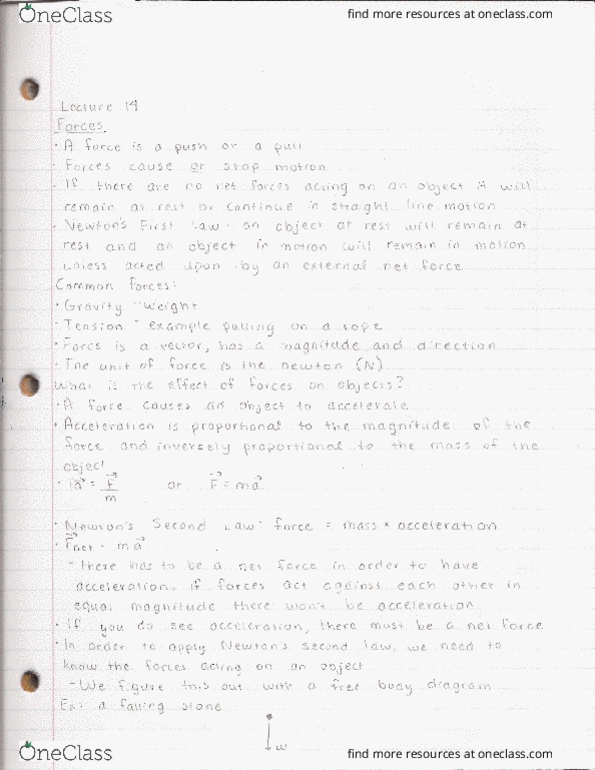 OneClass
find more resources at oneclass.com
Lecture 14
Forces
· A force is a push or a pull
· Forces cause or stop motion
· If there are no net forces acting on an object it will
remain at rest or continue in straight line motion
· Newton's First Law - an object at rest will remain at
rest and an object in motion will remain in motion
unless acted upon by an external net force
Common forces:
· Gravity - weight
- Tension - example pulling on a rope
· Force is a vector, has a magnitude and direction
· The unit of force is the newton (N)
What is the effect of forces on objects?
· A force causes an object to accelerate
· Acceleration is proportional to the magnitude of the
force and inversely proportional to the mass of the
object
· a⃗ = F⃗/m or F⃗ = ma⃗
· Newton's Second Law - force = mass × acceleration
· F⃗net = ma⃗
- there has to be a net force in order to have
acceleration, if forces act against each other in
equal magnitude there won't be acceleration
· If you do see acceleration, there must be a net force
· In order to apply Newton's second law, we need to
know the forces acting on an object
- We figure this out with a free body diagram
Ex: a falling stone
w
OneClass
find more resources at oneclass.com